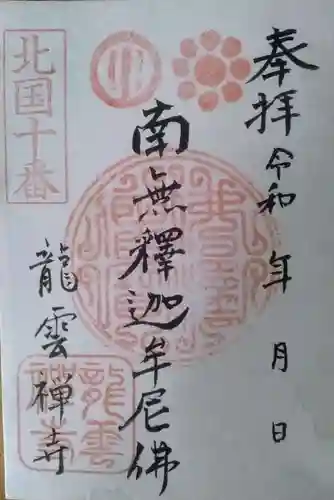 奉拝
令和 年 月 日
南無釋迦牟尼佛
北国十番
龍雲禅寺